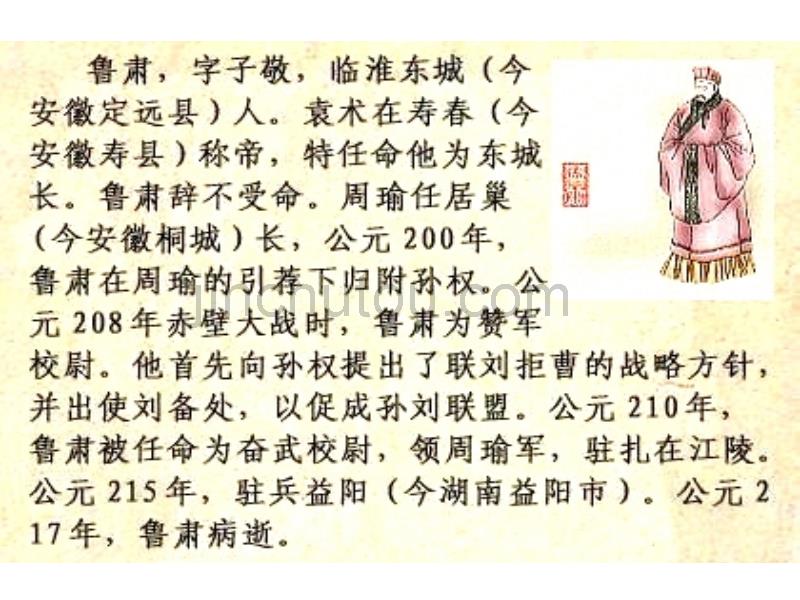 鲁肃，字子敬，临淮东城（今
安徽定远县）人。袁术在寿春（今
安徽寿县）称帝，特任命他为东城
长。鲁肃辞不受命。周瑜任居巢
（今安徽桐城）长，公元200年，
鲁肃在周瑜的引荐下归附孙权。公
元208年赤壁大战时，鲁肃为赞军
校尉。他首先向孙权提出了联刘拒曹的战略方针，
并出使刘备处，以促成孙刘联盟。公元210年，
鲁肃被任命为奋武校尉，领周瑜军，驻扎在江陵。
公元215年，驻兵益阳（今湖南益阳市）。公元2
17年，鲁肃病逝。